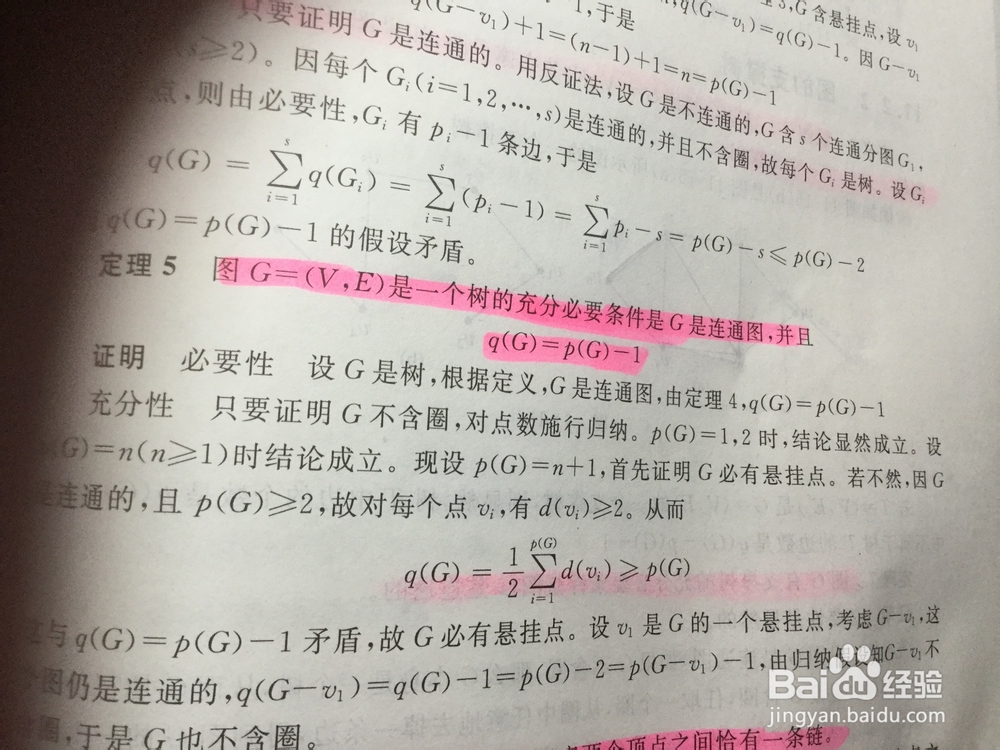 1,于是
3,G含悬挂点,设v₁
q(G-v₁)=q(G)-1。因G-v₁
q(G-v₁)+1=(n-1)+1=n=p(G)-1
只要证明G是连通的。用反证法,设G是不连通的,G含s个连通分图G₁,
s≥2)。因每个Gᵢ(i=1,2,…,s)是连通的,并且不含圈,故每个Gᵢ是树。设Gᵢ
点,则由必要性,Gᵢ有pᵢ-1条边,于是
q(G) = \sum_{i=1}^{s} q(Gᵢ) = \sum_{i=1}^{s} (pᵢ-1) = \sum_{i=1}^{s} pᵢ-s = p(G)-s≤p(G)-2
q(G)=p(G)-1的假设矛盾。
定理5 图G=(V,E)是一个树的充分必要条件是G是连通图,并且
q(G)=p(G)-1
证明 必要性 设G是树,根据定义,G是连通图,由定理4,q(G)=p(G)-1
充分性 只要证明G不含圈,对点数施行归纳。p(G)=1,2时,结论显然成立。设
(G)=n(n≥1)时结论成立。现设p(G)=n+1,首先证明G必有悬挂点。若不然,因G
是连通的,且p(G)≥2,故对每个点vᵢ,有d(vᵢ)≥2。从而
q(G) = \frac{1}{2} \sum_{i=1}^{p(G)} d(vᵢ) ≥ p(G)
与q(G)=p(G)-1矛盾,故G必有悬挂点。设v₁是G的一个悬挂点,考虑G-v₁,这
图仍是连通的,q(G-v₁)=q(G)-1=p(G)-2=p(G-v₁)-1,由归纳假设知G-v₁不
圈,于是G也不含圈。
两个顶点之间恰有一条链。
Baidu经验
jingyan.baidu.com